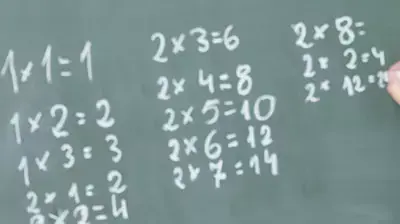 1×1=1
1×2=2
1×3=3
2×1=2
2×2=4
2×3=6
2×4=8
2×5=10
2×6=12
2×7=14
2×8=
2×2=4
2×12=2